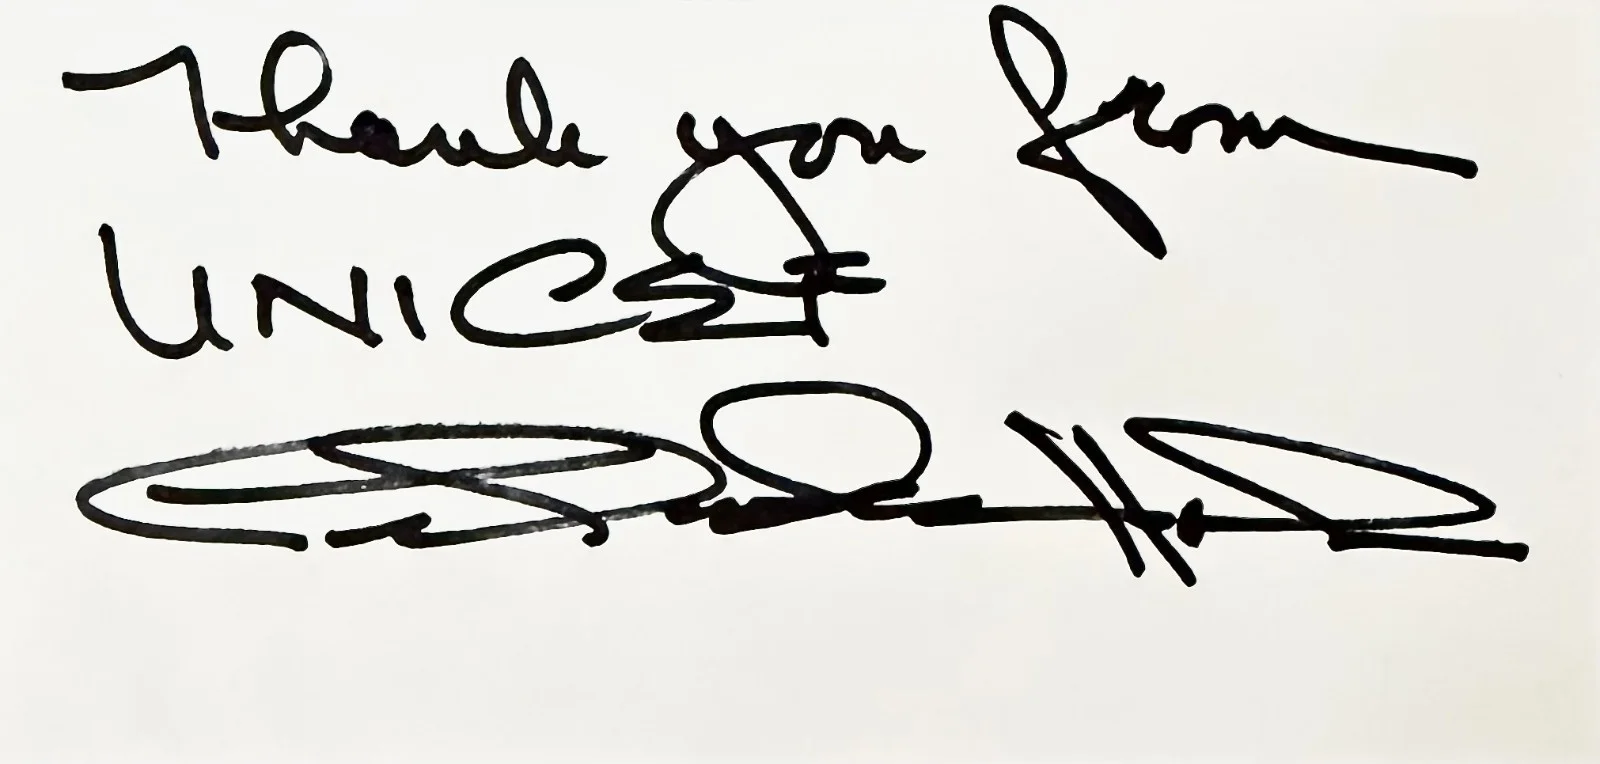 Thank you from
UNICEF